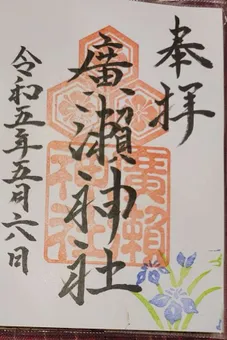 奉拝
廣瀬神社
令和五年五月六日
廣瀬
神社